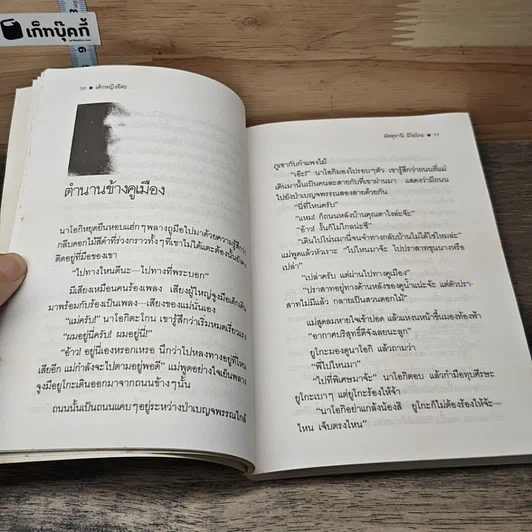 เก็ทบุ๊คกี้
30 ● เด็กหญิงอีดะ
ตำนานข้างคูเมือง
นาโอกิหยุดยืนหอบแฮ่กๆ พลางถูมือไปมาด้วยความรู้สึกว่า
กลีบดอกไม้สีดำที่ร่วงกราวทั้งๆ ที่เขาไม่ได้แตะต้องนั้นยังคง
ติดอยู่ที่มือของเขา
"ไปทางไหนดีนะ---ไปทางที่พระบอก"
มีเสียงเหมือนคนร้องเพลง เสียงผู้ใหญ่จูงมือเด็กเดิน
มาพร้อมกับร้องเป็นเพลง---เสียงของแม่นั่นเอง
"แม่ครับ!" นาโอกิตะโกน เขารู้สึกว่าเริ่มหมดเรี่ยวแรง
"ผมอยู่นี่ครับ! ผมอยู่นี่!"
"อ้าว! อยู่นี่เองหรอกเหรอ นึกว่าไปหลงทางอยู่ที่ไหน
เสียอีก แม่กำลังจะไปตามอยู่พอดี" แม่พูดอย่างใจเย็นพลาง
จูงมือยูโกะเดินออกมาจากถนนข้างๆ นั้น
ถนนนั้นเป็นถนนแคบๆ อยู่ระหว่างป่าเบญจพรรณใกล้
มัตสุทานิ มิโยโกะ ● 31
ภูเขากับกำแพงไม้
"เอ๊ะ!" นาโอกิมองไปรอบๆ ตัว เขารู้สึกว่าถนนที่แม่
เดินมานั้นเป็นคนละสายกับที่เขาผ่านมา แสดงว่ามีถนน
ไปยังป่าเบญจพรรณสองสายด้วยกัน
"นี่ที่ไหนครับ"
"แหม! ก็ถนนหลังบ้านคุณตาไงล่ะจ๊ะ"
"อ้าว! งั้นก็ไม่ไกลน่ะซี"
"เดินไปโน่นมานี่จนจำทางกลับบ้านไม่ได้ใช่ไหมล่ะ"
แม่พูดแล้วหัวเราะ "ไปไหนมาจ๊ะ ไปปราสาทขุนนางหรือ
เปล่า"
"เปล่าครับ แต่ผ่านไปทางคูเมือง"
"ปราสาทอยู่ทางด้านหลังของคูน่ะจ้ะ แต่ตัวปรา-
สาทไม่มีแล้ว กลายเป็นสวนดอกไม้"
แม่สูดลมหายใจเข้าปอด แล้วแหงนหน้าขึ้นมองท้องฟ้า
"อากาศบริสุทธิ์ดีจังเลยนะลูก"
ยูโกะมองดูนาโอกิ แล้วถามว่า
"พี่ไปไหนมา"
"ไปที่พิเศษมาจ้ะ" นาโอกิตอบ แล้วกำมือทุบศีรษะ
ยูโกะเบาๆ แต่ยูโกะร้องไห้จ้า
"นาโอกิอย่าแกล้งน้องสิ ยูโกะก็ไม่ต้องร้องไห้จ้ะ---
ไหน เจ็บตรงไหน"